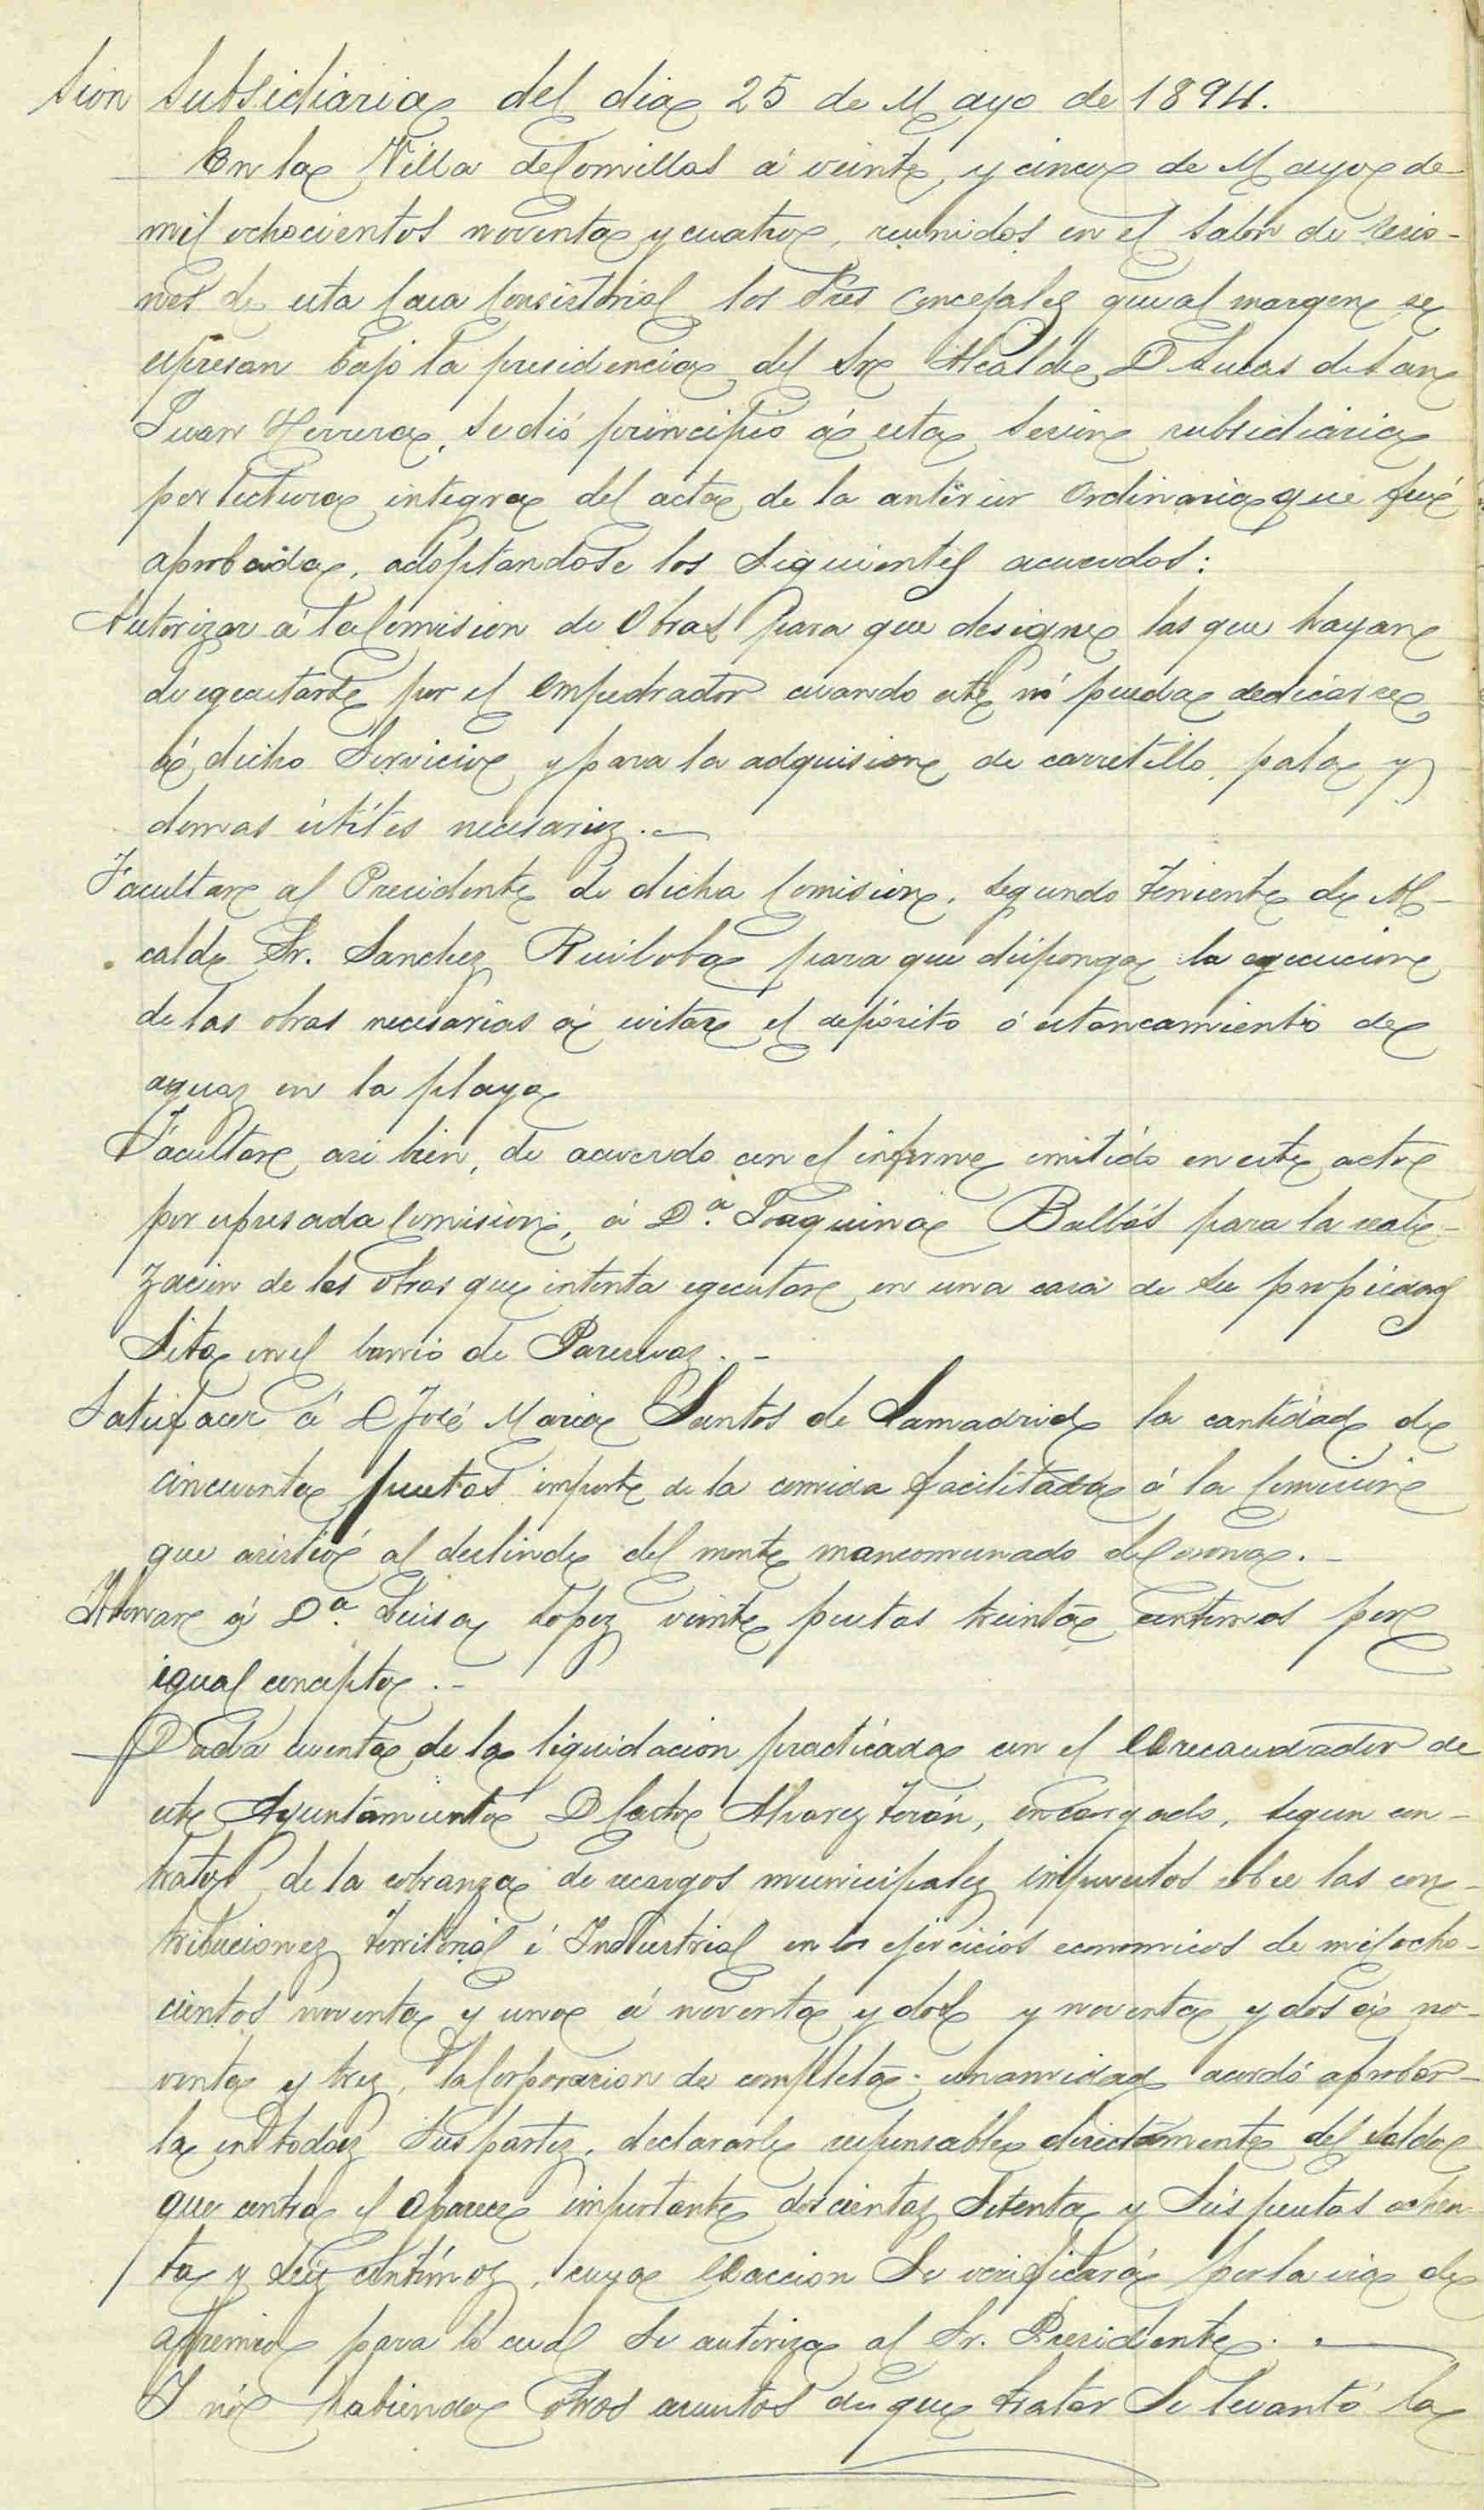 sion Subsidiaria del dia 25 de Mayo de 1894.
En la Villa de Comillas á veinte y cinco de Mayo de
mil ochocientos noventa y cuatro, reunidos en el Salon de sesio-
nes de esta Casa Consistorial los Sres Concejales que al margen se
espresan bajo la presidencia del Sr Alcalde D Lucas de San
Juan Herrera, se dió principio á esta sesion subsidiaria
por lectura integra del acta de la anterior Ordinaria que fué
aprobada, adoptandose los siguientes acuerdos:
Autorizar á la Comision de Obras para que designe las que hayan
de egecutarse por el empedrador cuando este nó pueda dedicarse
á dicho Servicio y para la adquision de carretillo, pala y
demas útiles necesarios.—
Facultar al Presidente de dicha Comision, segundo Teniente de Al-
calde Sr. Sanchez Ruiloba para que disponga la egecucion
de las obras necesarias á evitar el depósito ó estancamiento de
aguas en la playa
Facultar asi bien, de acuerdo con el informe emitido en este acto
por espresada Comision, á Dª. Joaquina Balbás para la reali-
zacion de las obras que intenta egecutar en una casa de su propiedad
Sita en el barrio de Pareseas.—
Satisfacer á D José Maria Santos de Lamadrid la cantidad de
cincuenta pesetas importe de la comida facilitada á la Comision
que asistió al deslinde del monte mancomunado de Corona.—
Abonar á Dª. Luisa Lopez veinte pesetas treinta centimos por
igual concepto.—
Dada cuenta de la liquidacion practicada con el Exrecaudador de
este Ayuntamiento D Castor Alvarez Terán, encargado, segun con-
trato, de la cobranza de recargos municipales impuestos sobre las con-
tribuciones Territorial é Industrial en los ejercicios economicos de mil ocho-
cientos noventa y uno á noventa y dos y noventa y dos á no-
venta y tres, la Corporacion de completa unanimidad acordó aprobar-
la en todas sus partes, declararle responsable directamente del saldo
que contra el aparece importante doscientas setenta y seis pesetas ochen-
ta y seis centimos, cuya exaccion se verificará por la via de
apremio para lo cual se autoriza al Sr. Presidente.—
Y nó habiendo otros asuntos de que tratar se levantó la